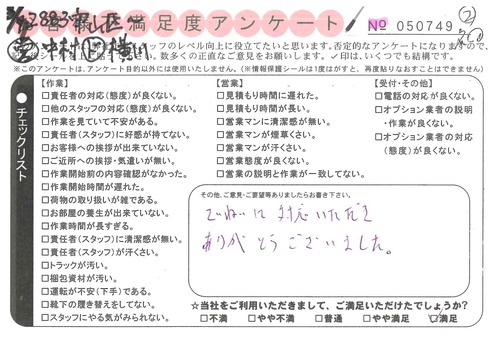 お客様満足度アンケート
№ 050749 ②
スタッフのレベル向上に役立てたいと思います。否定的なアンケートになりますので、
数多くの正直なご意見をお願いします。✓印は、いくつでも結構です。
※このアンケートは、アンケート目的以外には使用いたしません。(※情報保護シールは1度はがすと、再度貼りなおすことはできません)
チェックリスト
【作業】
□責任者の対応(態度)が良くない。
□他のスタッフの対応(態度)が良くない。
□作業を見ていて不安がある。
□責任者(スタッフ)に好感が持てない。
□お客様への挨拶が出来ていない。
□ご近所への挨拶・気遣いが無い。
□作業開始前の内容確認がなかった。
□作業開始時間が遅れた。
□荷物の取り扱いが雑である。
□お部屋の養生が出来ていない。
□作業時間が長すぎる。
□責任者(スタッフ)に清潔感が無い。
□責任者(スタッフ)が汗くさい。
□トラックが汚い。
□梱包資材が汚い。
□運転が不安(下手)である。
□靴下の履き替えをしてない。
□スタッフにやる気がみられない。
【営業】
□見積もり時間に遅れた。
□見積もり時間が長い。
□営業マンに清潔感が無い。
□営業マンが煙草くさい。
□営業マンが汗くさい。
□営業態度が良くない。
□営業の説明と作業が一致してない。
【受付・その他】
□電話の対応が良くない。
□オプション業者の説明
・作業が良くない。
□オプション業者の対応
(態度)が良くない。
その他、ご意見・ご要望等ありましたらお書き下さい。
ていねいに対応いただき
ありがとうございました。
☆当社をご利用いただきまして、ご満足いただけたでしょうか?
□不満 □やや不満 □普通 □やや満足 □満足